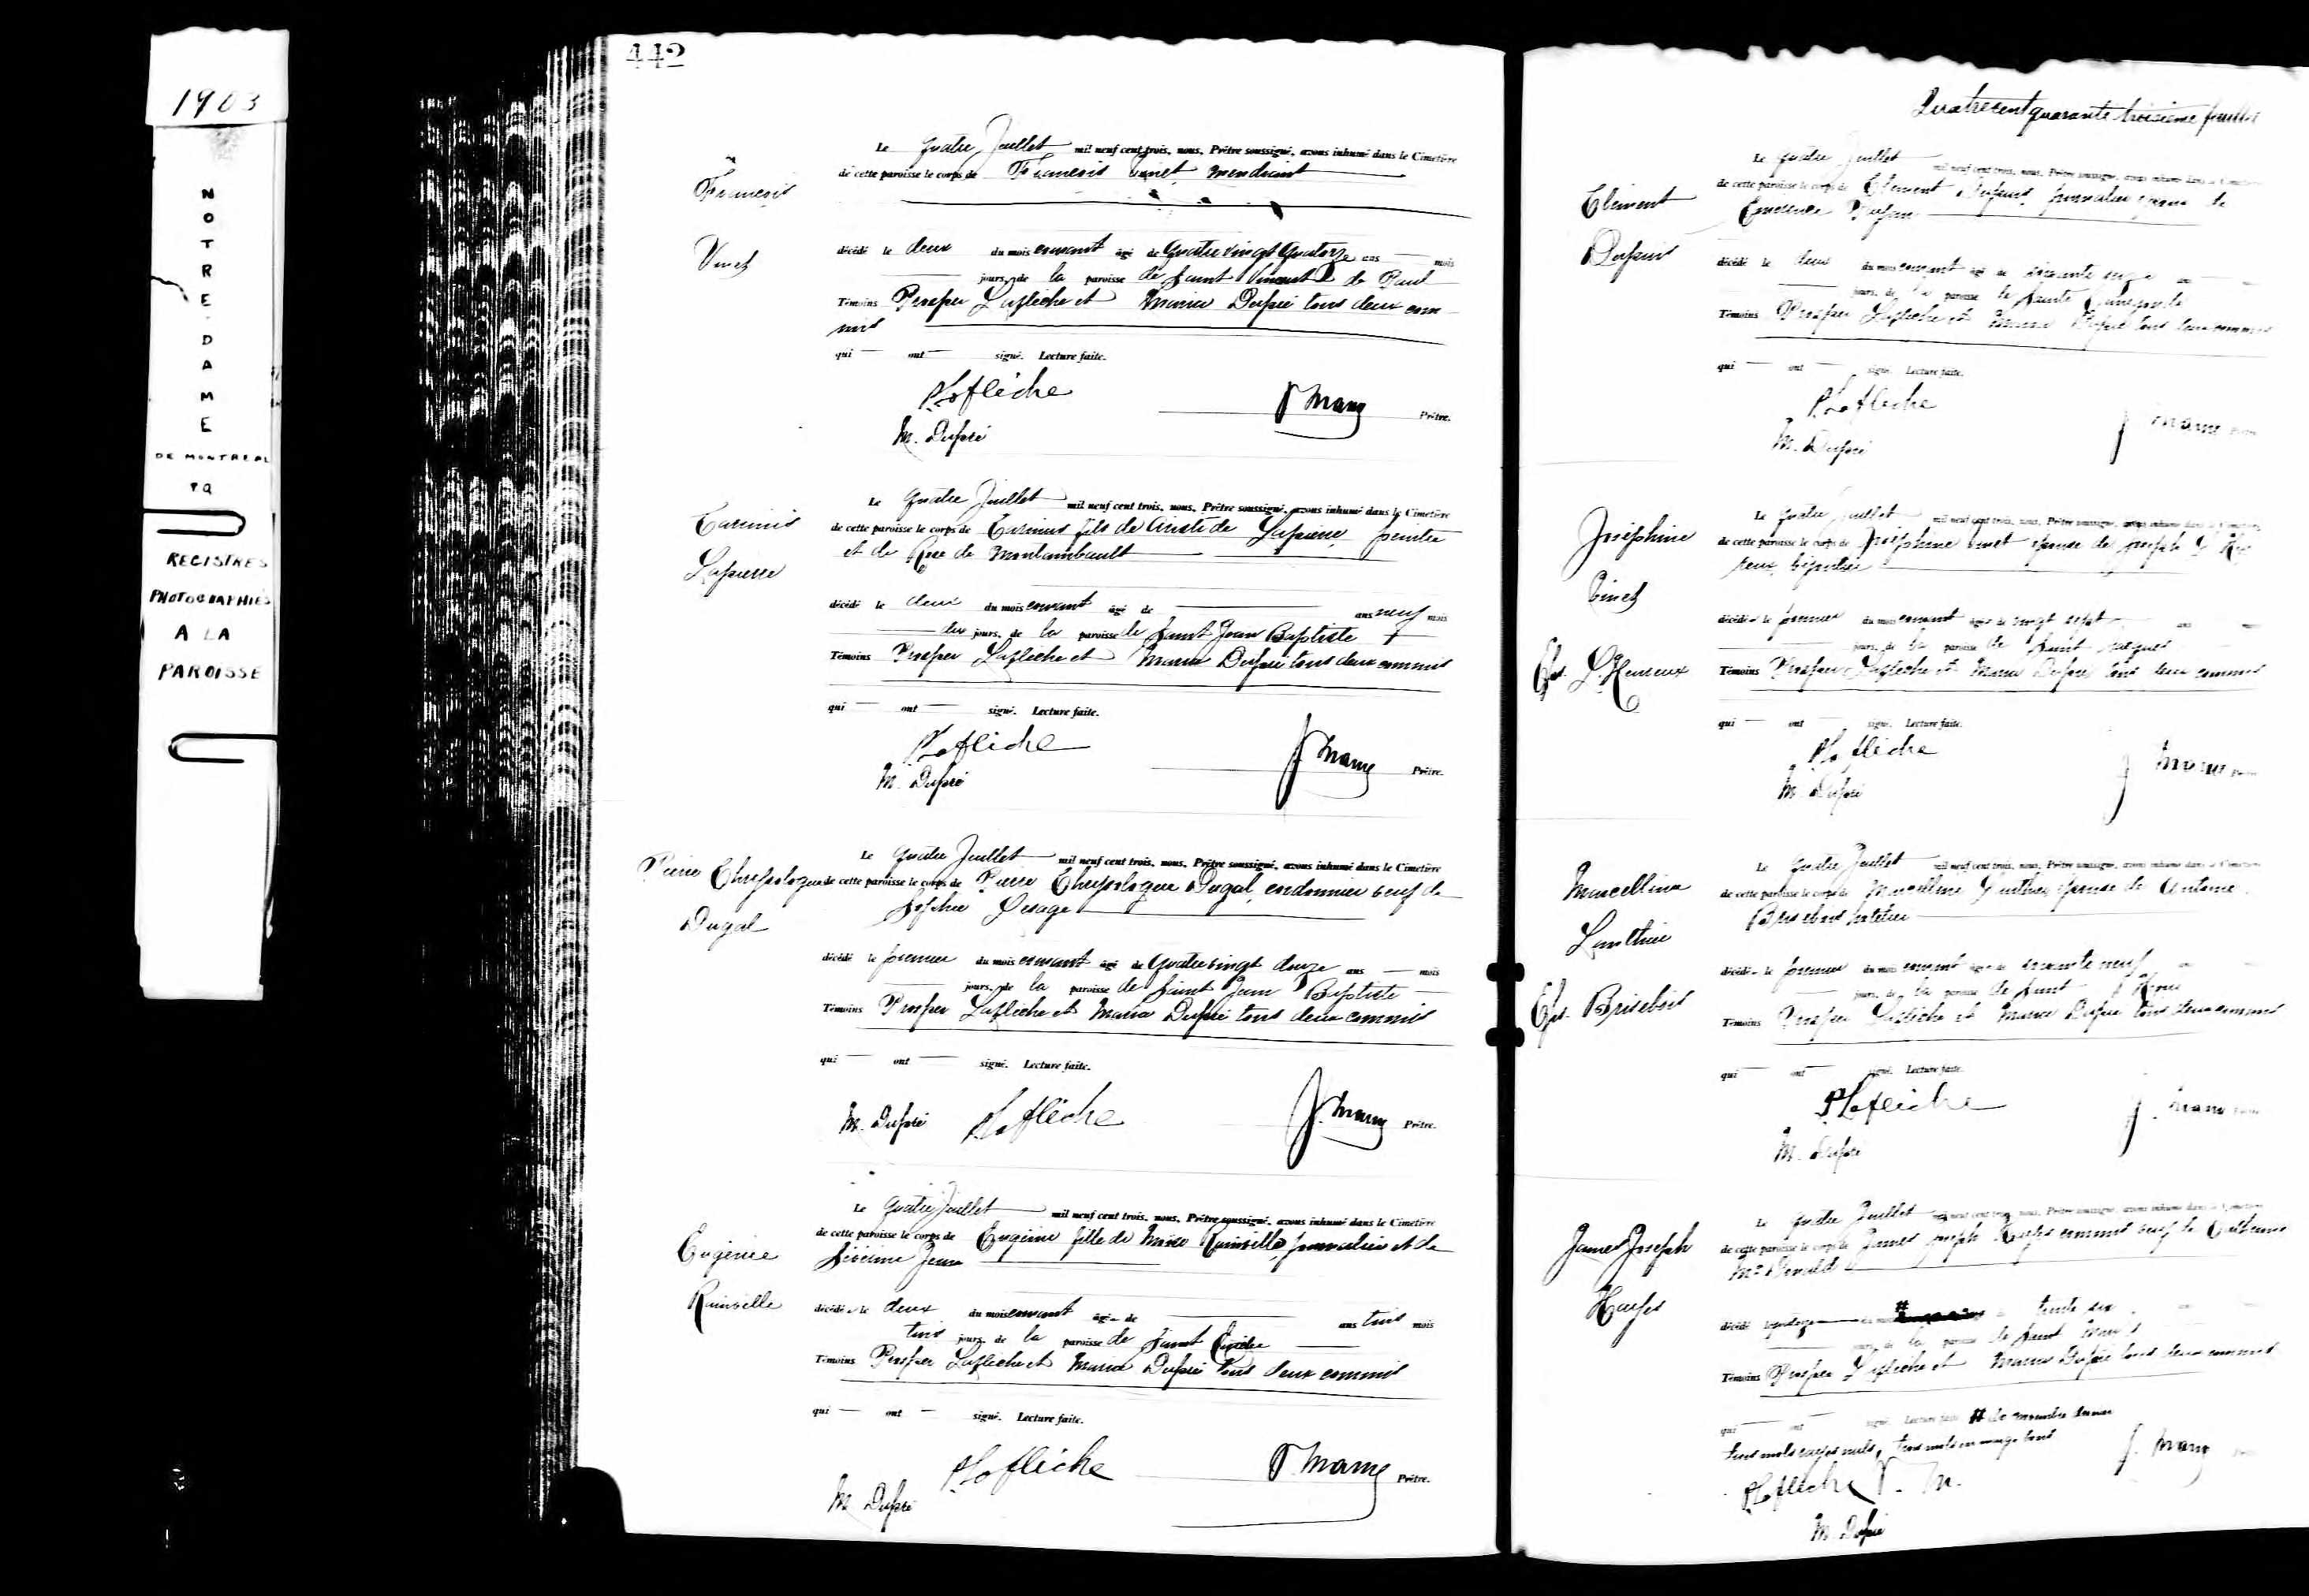 1903
NOTRE-DAME
DE MONTREAL
PQ
REGISTRES
PHOTOGRAPHIÉS
A LA
PAROISSE
442
François
Vinet
Le quatre Juillet mil neuf cent trois, nous, Prêtre soussigné, avons inhumé dans le Cimetière
de cette paroisse le corps de François Vinet mendiant
décédé le deux du mois courant âgé de quatre vingt quatorze ans mois
jours, de la paroisse de Saint Vincent de Paul
Témoins Prosper Laflèche et Maria Dupré tous deux com
mis
qui ont signé. Lecture faite.
P. Laflèche
M. Dupré
Prêtre.
Lapierre
Le quatre Juillet mil neuf cent trois, nous, Prêtre soussigné, avons inhumé dans le Cimetière
de cette paroisse le corps de fils de Aristide Lapierre, peintre
et de Rose de Montambault
décédé le deux du mois courant âgé de ans neuf mois
jours, de la paroisse de Saint Jean Baptiste
Témoins Prosper Laflèche et Maria Dupré tous deux commis
qui ont signé. Lecture faite.
P. Laflèche
M. Dupré
Prêtre.
Pierre Chrysologue
Dugal
Le quatre Juillet mil neuf cent trois, nous, Prêtre soussigné, avons inhumé dans le Cimetière
de cette paroisse le corps de Pierre Chrysologue Dugal, cordonnier veuf de
Sophie Lesage
décédé le premier du mois courant âgé de quatre vingt douze ans mois
jours, de la paroisse de Saint Jean Baptiste
Témoins Prosper Laflèche et Maria Dupré tous deux commis
qui ont signé. Lecture faite.
M. Dupré P. Laflèche
Prêtre.
Eugénie
Rainville
Le quatre Juillet mil neuf cent trois, nous, Prêtre soussigné, avons inhumé dans le Cimetière
de cette paroisse le corps de Eugénie fille de Moïse Rainville, journalier et de
décédée le deux du mois courant âgée de ans trois mois
trois jours, de la paroisse de Saint
Témoins Prosper Laflèche et Maria Dupré tous deux commis
qui ont signé. Lecture faite.
P. Laflèche
M. Dupré
Prêtre.
Quatre cent quarante troisième feuillet
Clément
Dupuis
Le quatre Juillet mil neuf cent trois, nous, Prêtre soussigné, avons inhumé dans le Cimetière
de cette paroisse le corps de Clément Dupuis, journalier époux de
décédé le deux du mois courant âgé de soixante
jours, de la paroisse de Sainte Cunégonde
Témoins Prosper Laflèche et Maria Dupré tous deux commis
qui ont signé. Lecture faite.
P. Laflèche
M. Dupré
Joséphine
Vinet
Eps. L'Heureux
Le quatre Juillet mil neuf cent trois, nous, Prêtre soussigné, avons inhumé dans le Cimetière
de cette paroisse le corps de Joséphine Vinet épouse de Joseph L'Heu
reux, bijoutier
décédée le premier du mois courant âgée de vingt sept ans
jours, de la paroisse de Saint Jacques
Témoins Prosper Laflèche et Maria Dupré tous deux commis
qui ont signé. Lecture faite.
P. Laflèche
M. Dupré
Marcelline
Lanthier
Eps. Brisebois
Le quatre Juillet mil neuf cent trois, nous, Prêtre soussigné, avons inhumé dans le Cimetière
de cette paroisse le corps de Marcelline Lanthier, épouse de Antoine
Brisebois
décédée le premier du mois courant âgée de soixante neuf
jours, de la paroisse de Saint
Témoins Prosper Laflèche et Maria Dupré tous deux commis
qui ont signé. Lecture faite.
P. Laflèche
M. Dupré
James Joseph
Hayes
Le quatre Juillet mil neuf cent trois, nous, Prêtre soussigné, avons inhumé dans le Cimetière
de cette paroisse le corps de James Joseph Hayes commis veuf de Catherine
McDonald
décédé le quatorze # trente six
de la paroisse de Saint
Témoins Prosper Laflèche et Maria Dupré tous deux commis
qui ont signé. Lecture faite. # de novembre dernier
trois mots rayés nuls, trois mots en marge bons
P. Laflèche
M. Dupré